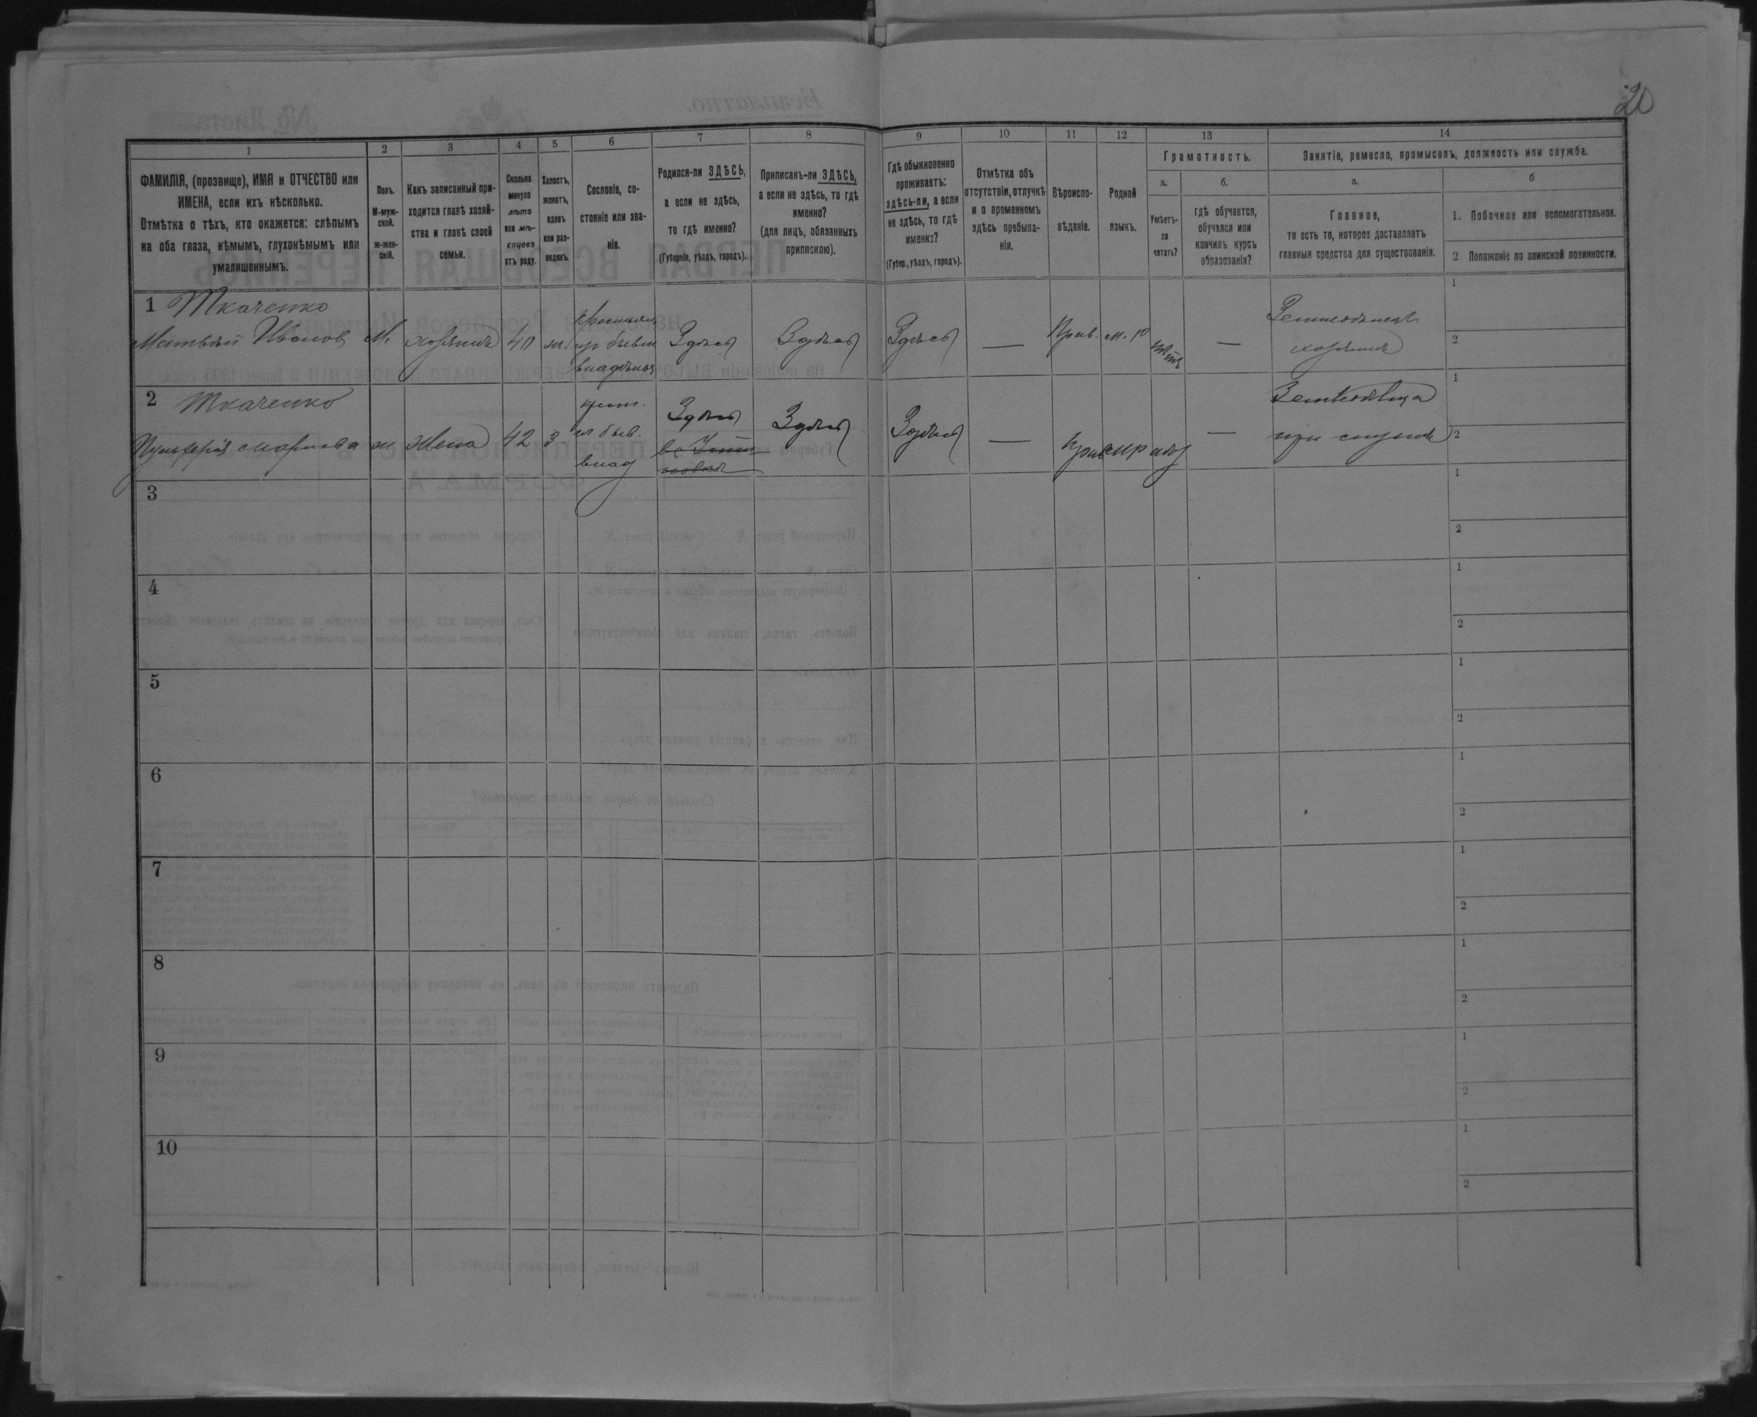 20
1
2
3
4
5
6
7
8
9
10
11
12
13
14
ФАМИЛІЯ, (прозвище), ИМЯ и ОТЧЕСТВО или
ИМЕНА, если ихъ нѣсколько.
Отмѣтка о тѣхъ, кто окажется: слѣпымъ
на оба глаза, нѣмымъ, глухонѣмымъ или
умалишеннымъ.
Полъ.
М-муж-
ской.
ж-жен-
скій.
Какъ записанный при-
ходится главѣ хозяй-
ства и главѣ своей
семьи.
Сколько
минуло
лѣтъ
или мѣ-
сяцевъ
отъ роду.
Холостъ,
женатъ,
вдовъ
или раз-
веденъ.
Сословіе, со-
стояніе или зва-
ніе.
Родился-ли ЗДѢСЬ,
а если не здѣсь,
то гдѣ именно?
(Губернія, уѣздъ, городъ).
Приписанъ-ли ЗДѢСЬ,
а если не здѣсь, то гдѣ
именно?
(для лицъ, обязанныхъ
припискою).
Гдѣ обыкновенно
проживаетъ:
здѣсь-ли, а если
не здѣсь, то гдѣ
именно?
(Губер., уѣздъ, городъ).
Отмѣтка объ
отсутствіи, отлучкѣ
и о временномъ
здѣсь пребыва-
ніи.
Вѣроиспо-
вѣданіе.
Родной
языкъ.
Грамотность.
а.
Умѣетъ-
ли
читать?
б.
гдѣ обучается,
обучался или
кончилъ курсъ
образованія?
Занятіе, ремесло, промыселъ, должность или служба.
а.
Главное,
то есть то, которое доставляетъ
главныя средства для существованія.
б
1. Побочное или вспомогательное.
2 Положеніе по воинской повинности.
1 Ткаченко
Матвѣй Иванов М. хозяинъ 40 ж. из бывш Здѣсь Здѣсь Здѣсь — Прав. м. р —
владѣльч
Земледѣлецъ
хозяинъ
1
2
2 Ткаченко
Маркова ж. жена 42 з из быв. Здѣсь Здѣсь Здѣсь — —
влад
при мужѣ
1
2
3
1
2
4
1
2
5
1
2
6
1
2
7
1
2
8
1
2
9
1
2
10
1
2